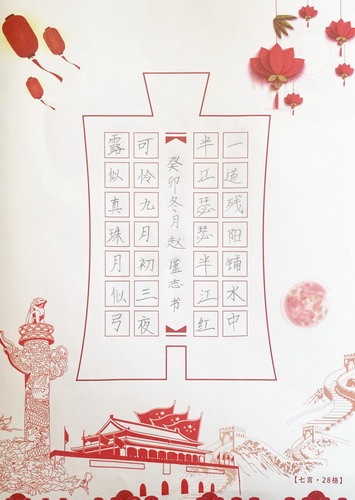 一道残阳铺水中
半江瑟瑟半江红
癸卯冬月赵志书
可怜九月初三夜
露似真珠月似弓
【七言·28格】